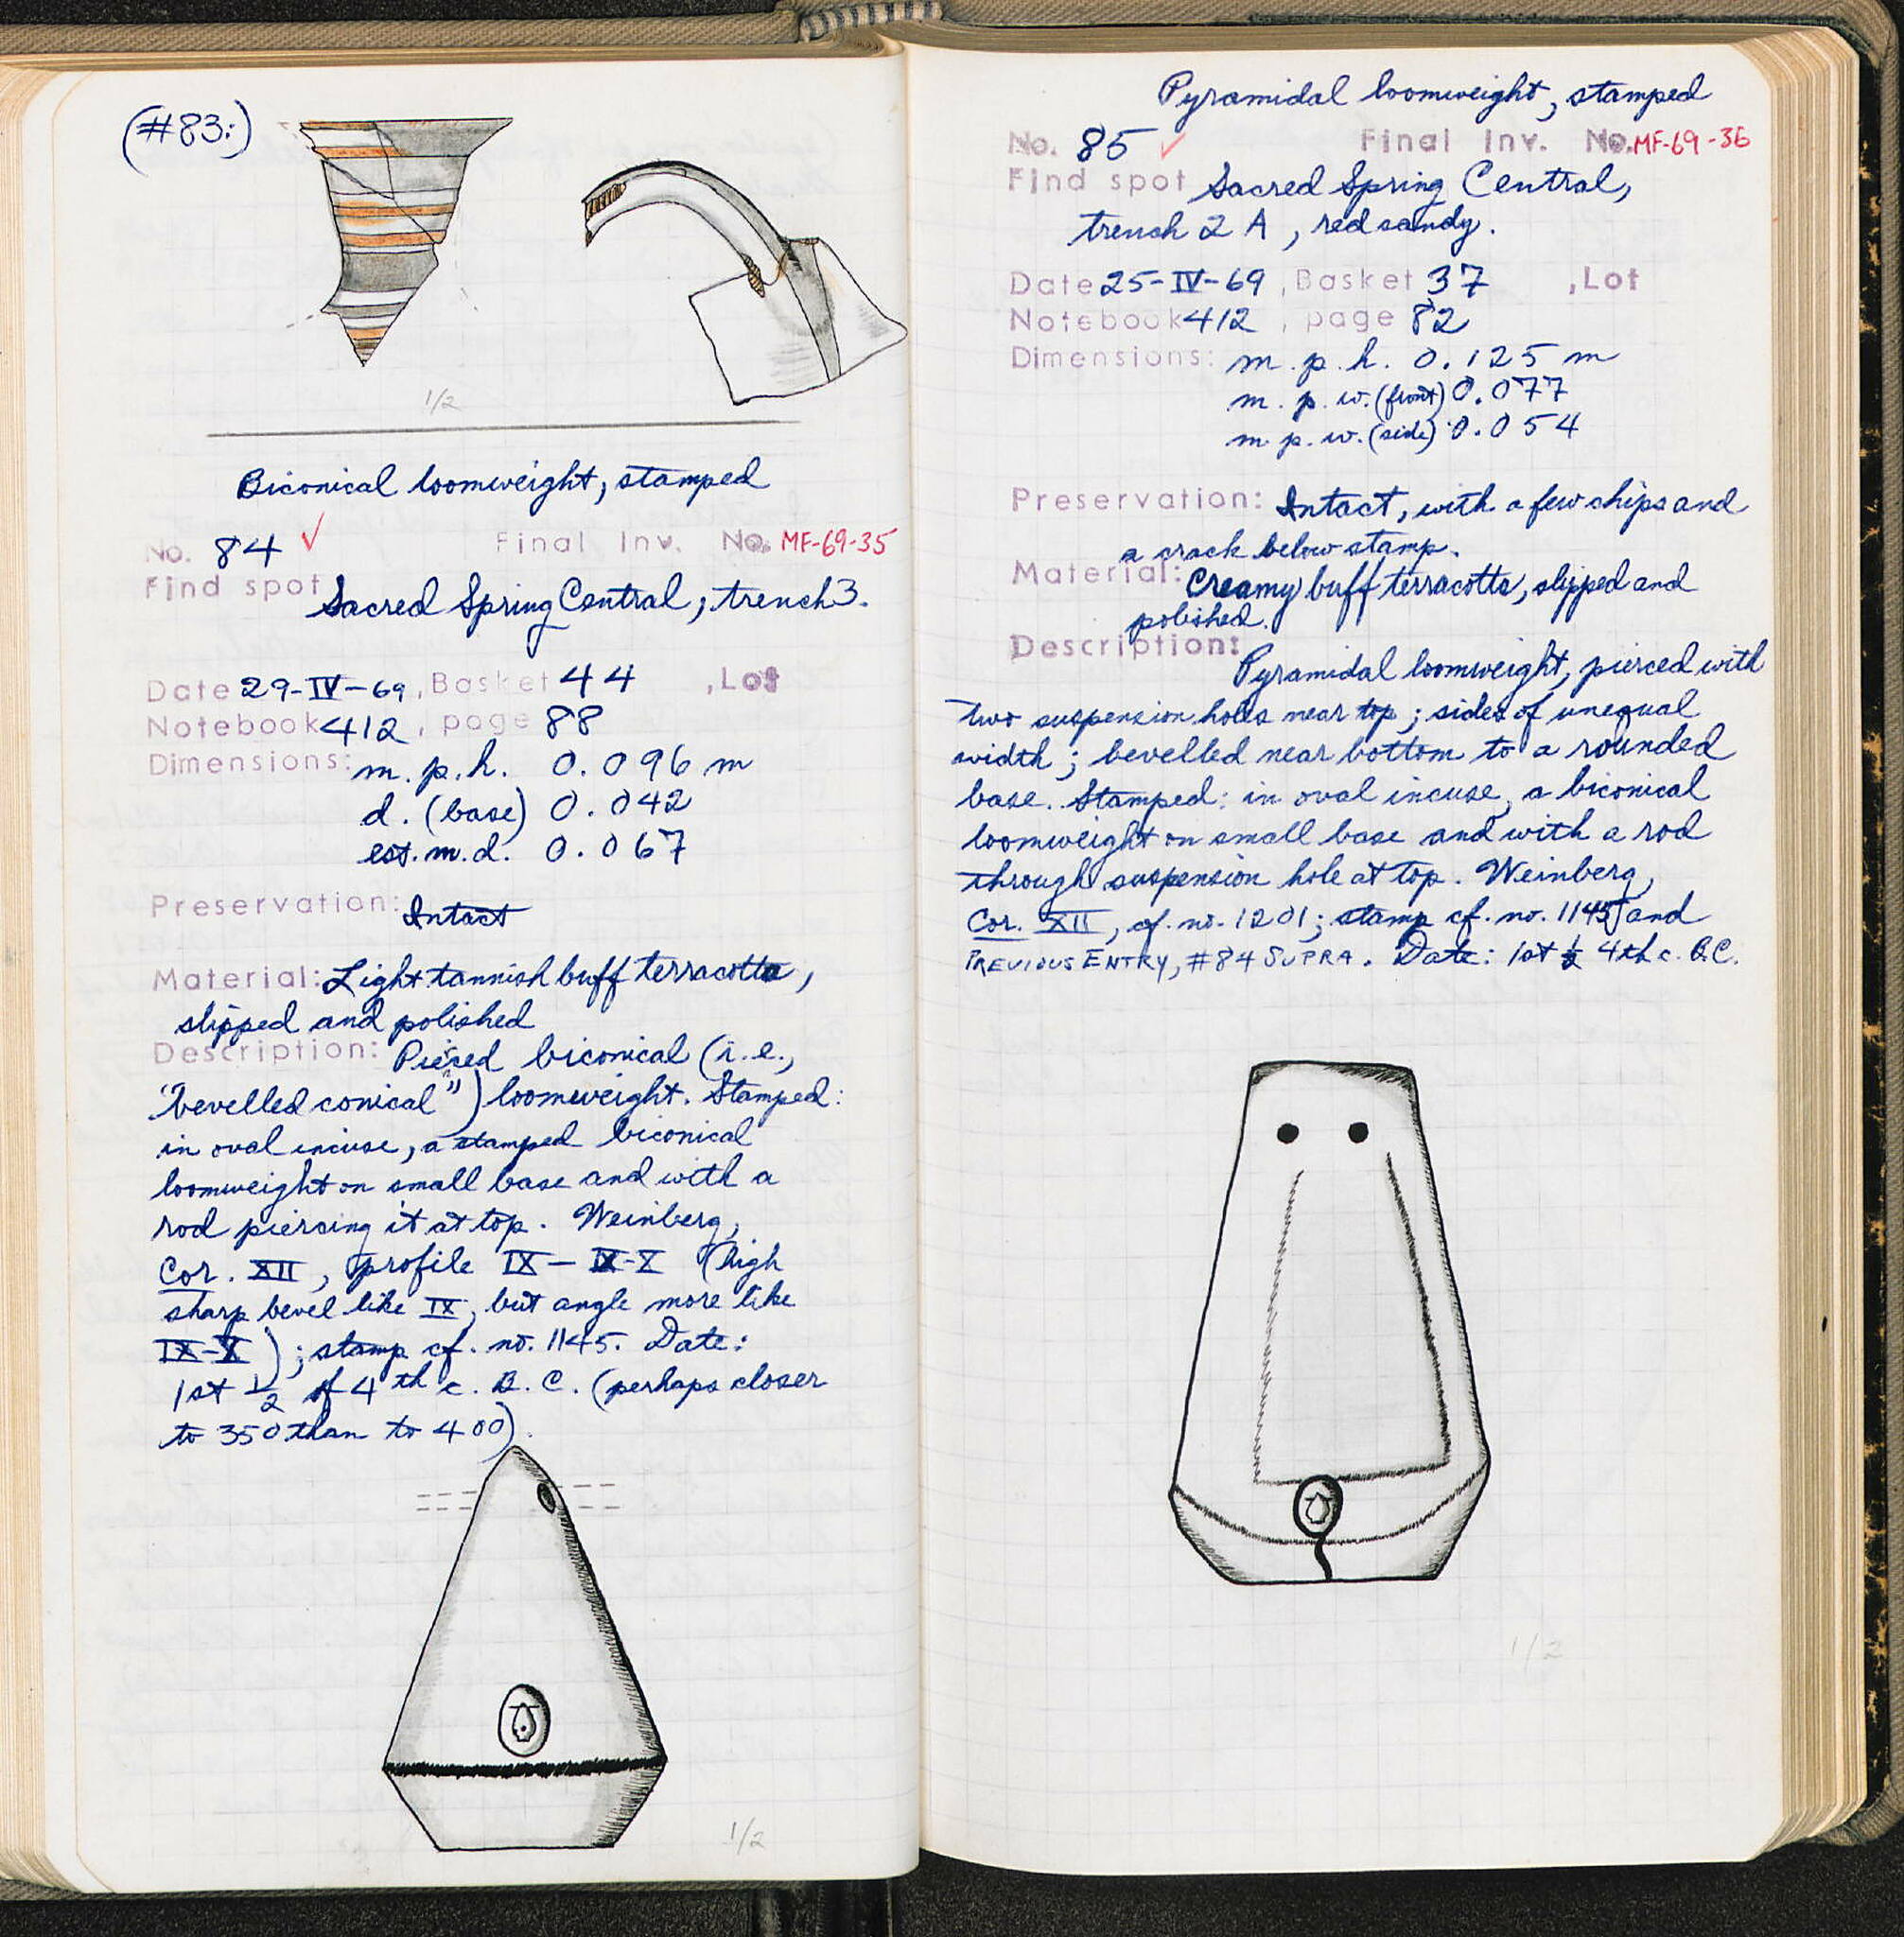 (#83:)
1/2
Biconical loomweight, stamped
No. 84 ✓ Final Inv. No. MF-69-35
Find spot Sacred Spring Central, trench 3.
Date 29-IV-69, Basket 44 , Lot
Notebook 412, page 88
Dimensions: m.p.h. 0.096 m
d. (base) 0.042
est. m.d. 0.067
Preservation: Intact
Material: Light tannish buff terracotta,
slipped and polished
Description: Pierced biconical (i.e.,
"bevelled conical") loomweight. Stamped:
in oval incuse, a stamped biconical
loomweight on small base and with a
rod piercing it at top. Weinberg,
Cor. XII, profile IX – IX-X (high
sharp bevel like IX, but angle more like
IX-X); stamp cf. no. 1145. Date:
1st 1/2 of 4th c. B.C. (perhaps closer
to 350 than to 400).
1/2
Pyramidal loomweight, stamped
No. 85 ✓ Final Inv. No. MF-69-36
Find spot Sacred Spring Central,
trench 2 A, red sandy.
Date 25-IV-69, Basket 37 , Lot
Notebook 412, page 82
Dimensions: m.p.h. 0.125 m
m.p.w. (front) 0.077
m.p.w. (side) 0.054
Preservation: Intact, with a few chips and
a crack below stamp.
Material: Creamy buff terracotta, slipped and
polished.
Description:
Pyramidal loomweight, pierced with
two suspension holes near top; sides of unequal
width; bevelled near bottom to a rounded
base. Stamped: in oval incuse, a biconical
loomweight on small base and with a rod
through suspension hole at top. Weinberg,
Cor. XII, cf. no. 1201; stamp cf. no. 1145 and
PREVIOUS ENTRY, #84 SUPRA. Date: 1st 1/2 4th c. B.C.
1/2